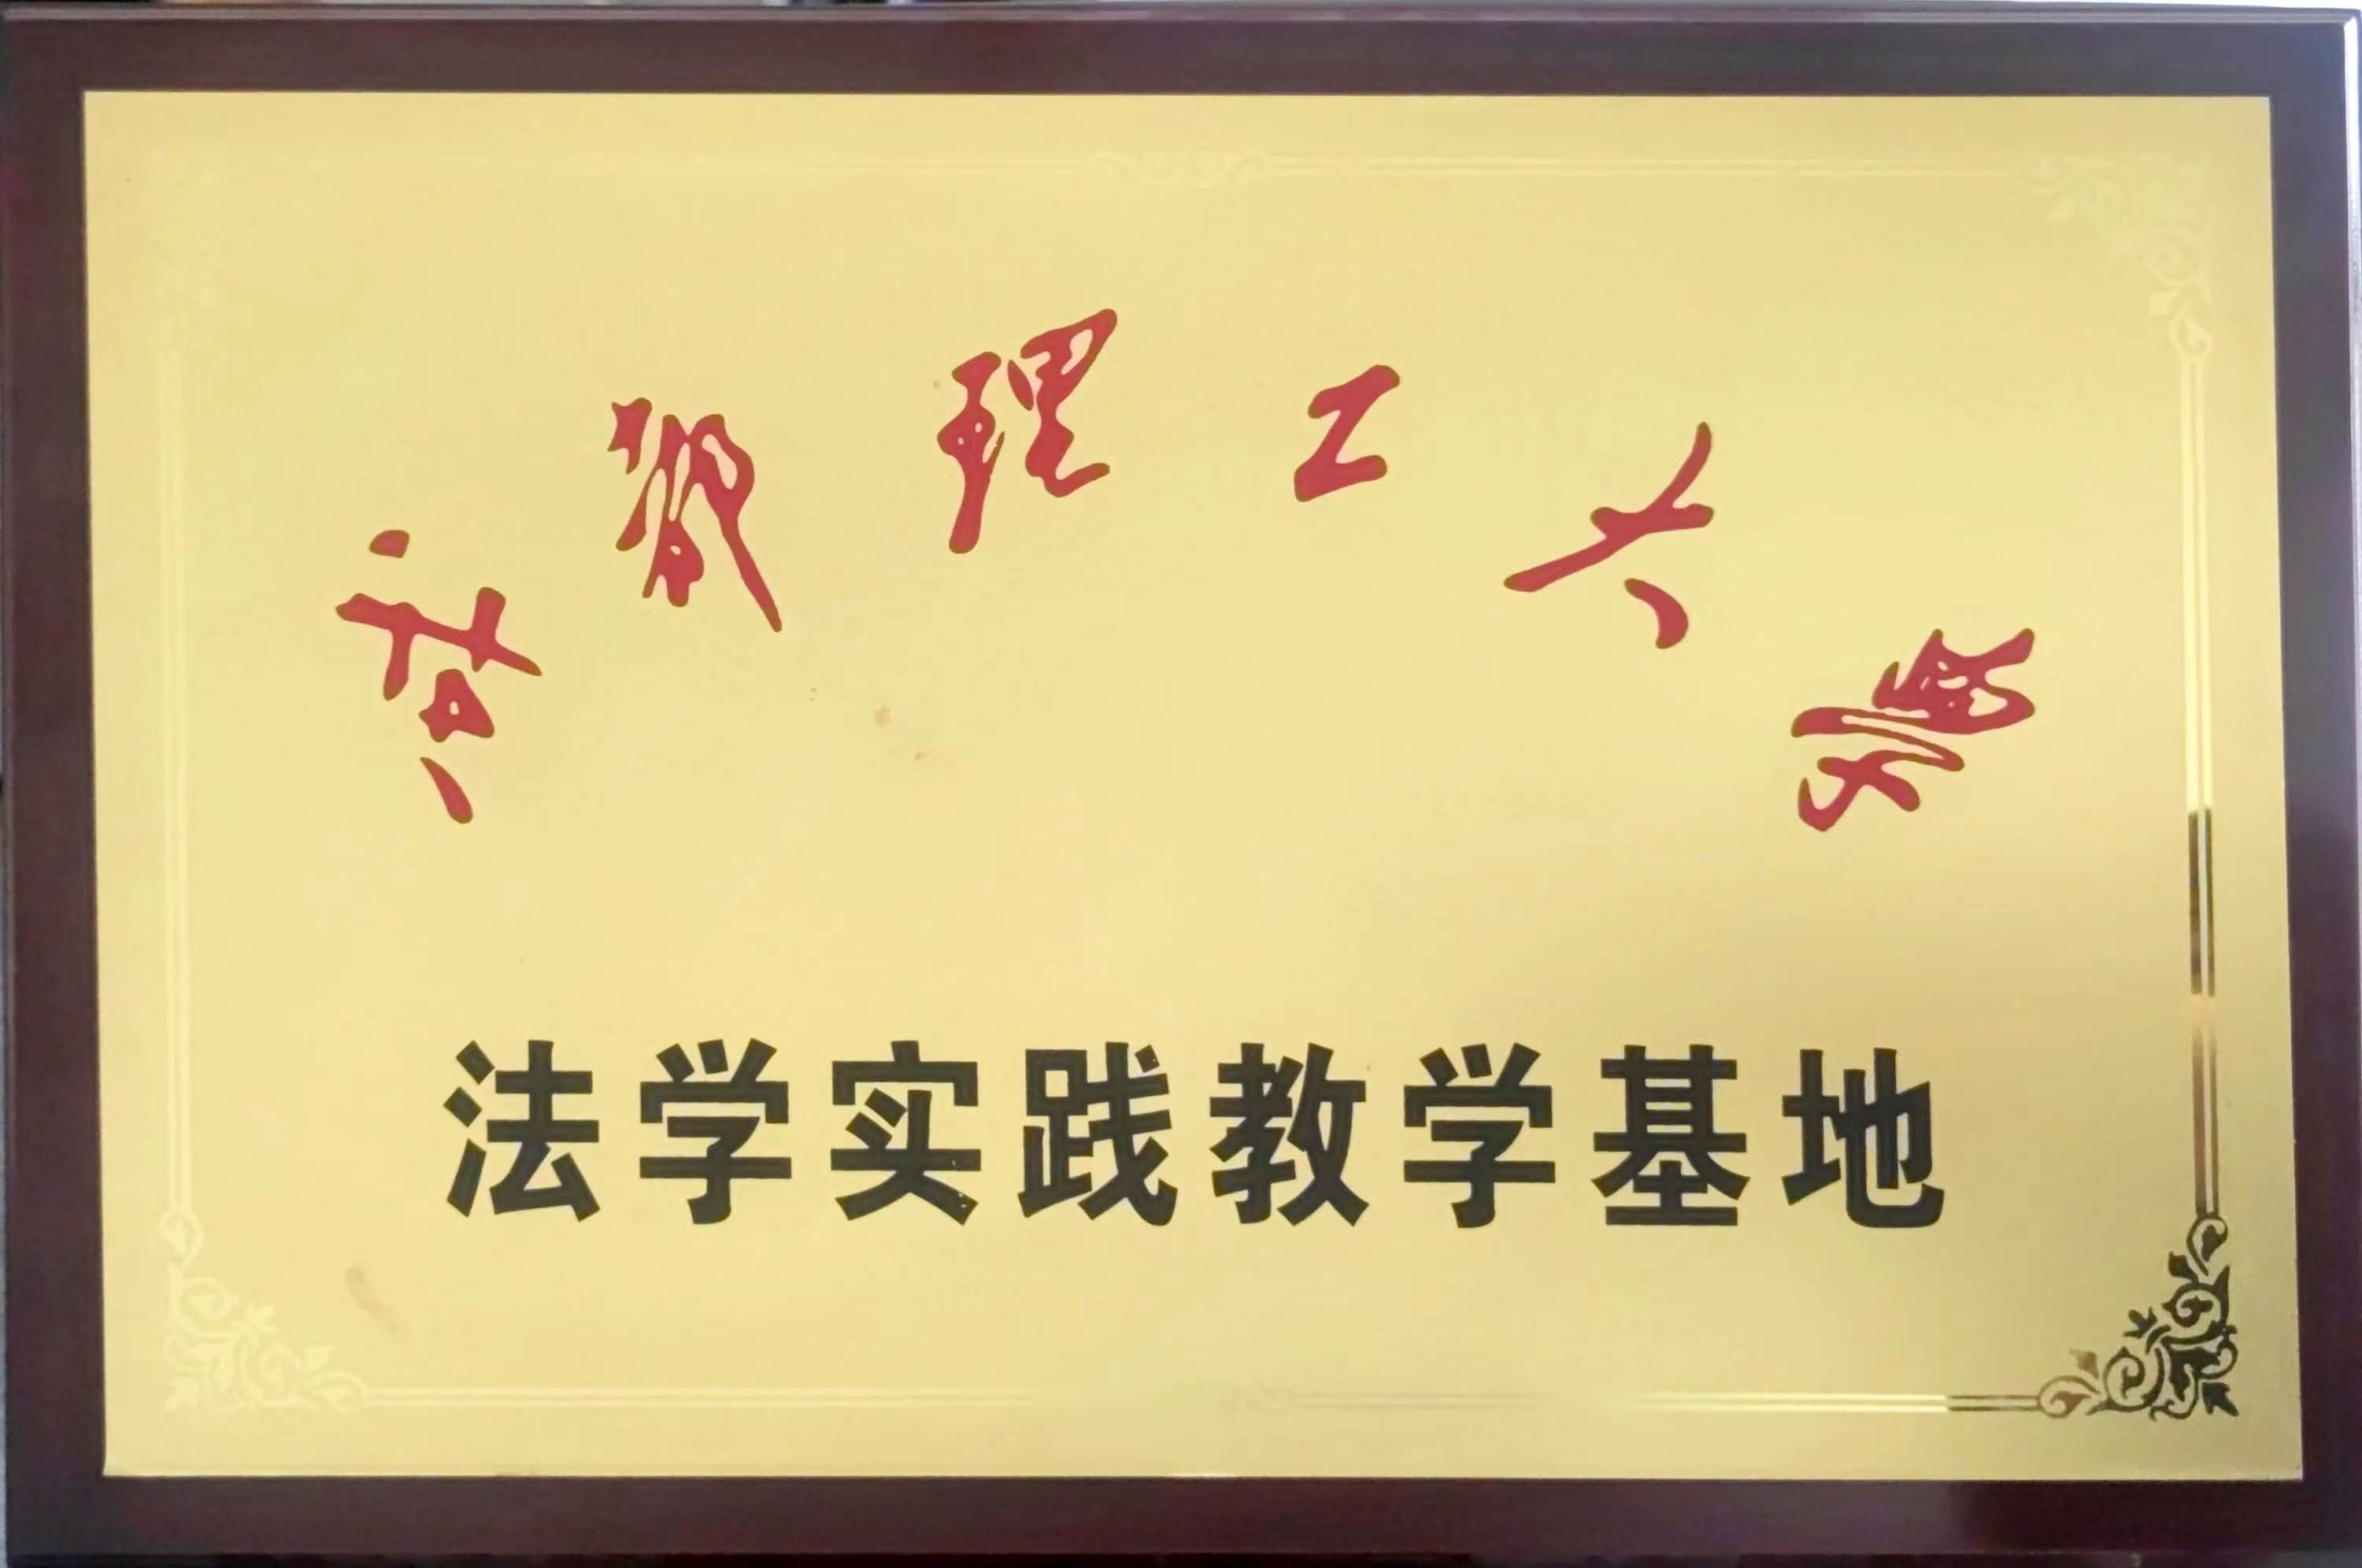 成都理工大学
法学实践教学基地